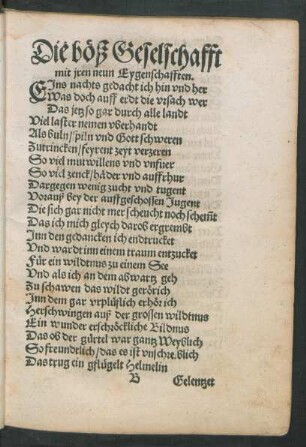 Die böß Geselschafft
mit jren neun Eygenschafften.
EIns nachts gedacht ich hin vnd her
Was doch auff erdt die vrsach wer
Das jetz so gar durch alle landt
Viel laster nemen vberhandt
Als buln/spiln vnd Gott schweren
Zutrincken/feyrent zeyt verzeren
So vid mutwillens vnd vnfuer
So vid zenck/hader vnd auffrhur
Dargegen wenig zucht vnd tugent
Vorauß bey der auffgeschossen Jugent
Die sich gar nicht mer scheucht noch schemt
Das ich mich gleych darob ergrembt
Inn den gedancken ich entdrucket
Vnd wardt inn einem traum entzucket
Für ein wildtnus zu einem See
Vnd als ich an dem abwartz geh
Zu schawen das wildt gerörich
Inn dem gar vrplüslich erhör ich
Herschwingen auß der grossen wildtnus
Ein wunder erschröckliche Bildnus
Das ob der gürtel war gantz Weyblich
So freundtlich/das es ist vnschreyblich
Das trug ein gflügelt Helmelin
B Gelentzet